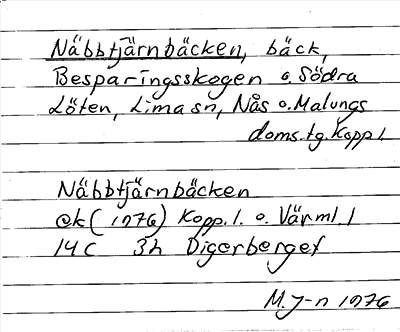 Näbbtjärnbäcken, bäck,
Besparingsskogen o. Södra
Löten, Lima sn, Nås o. Malungs
doms. tg. Kopp l.
Näbbtjärnbäcken
ek (1976) Kopp. l. o. Värml l
14 C 3h Digerberget
M J-n 1976